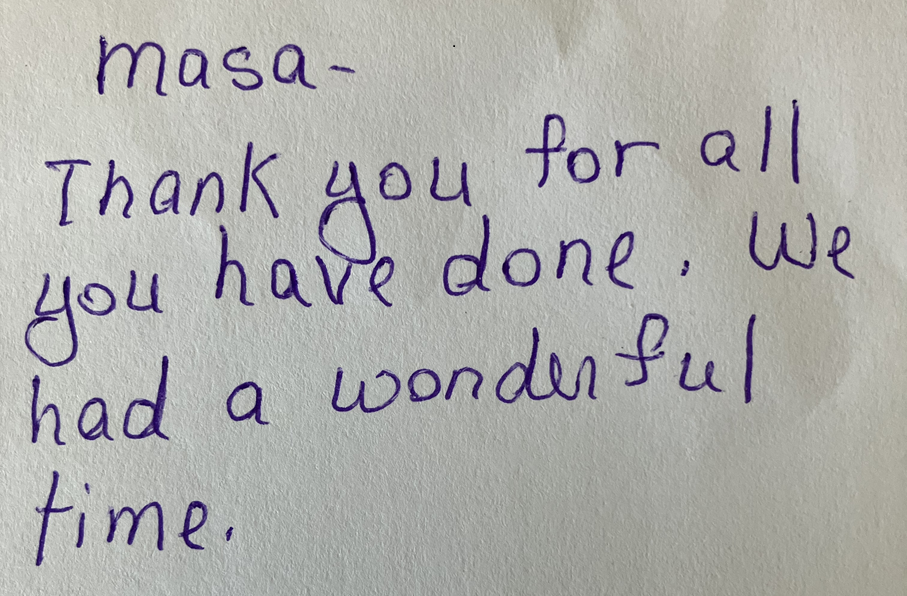 masa-
Thank you for all
you have done. We
had a wonderful
time.